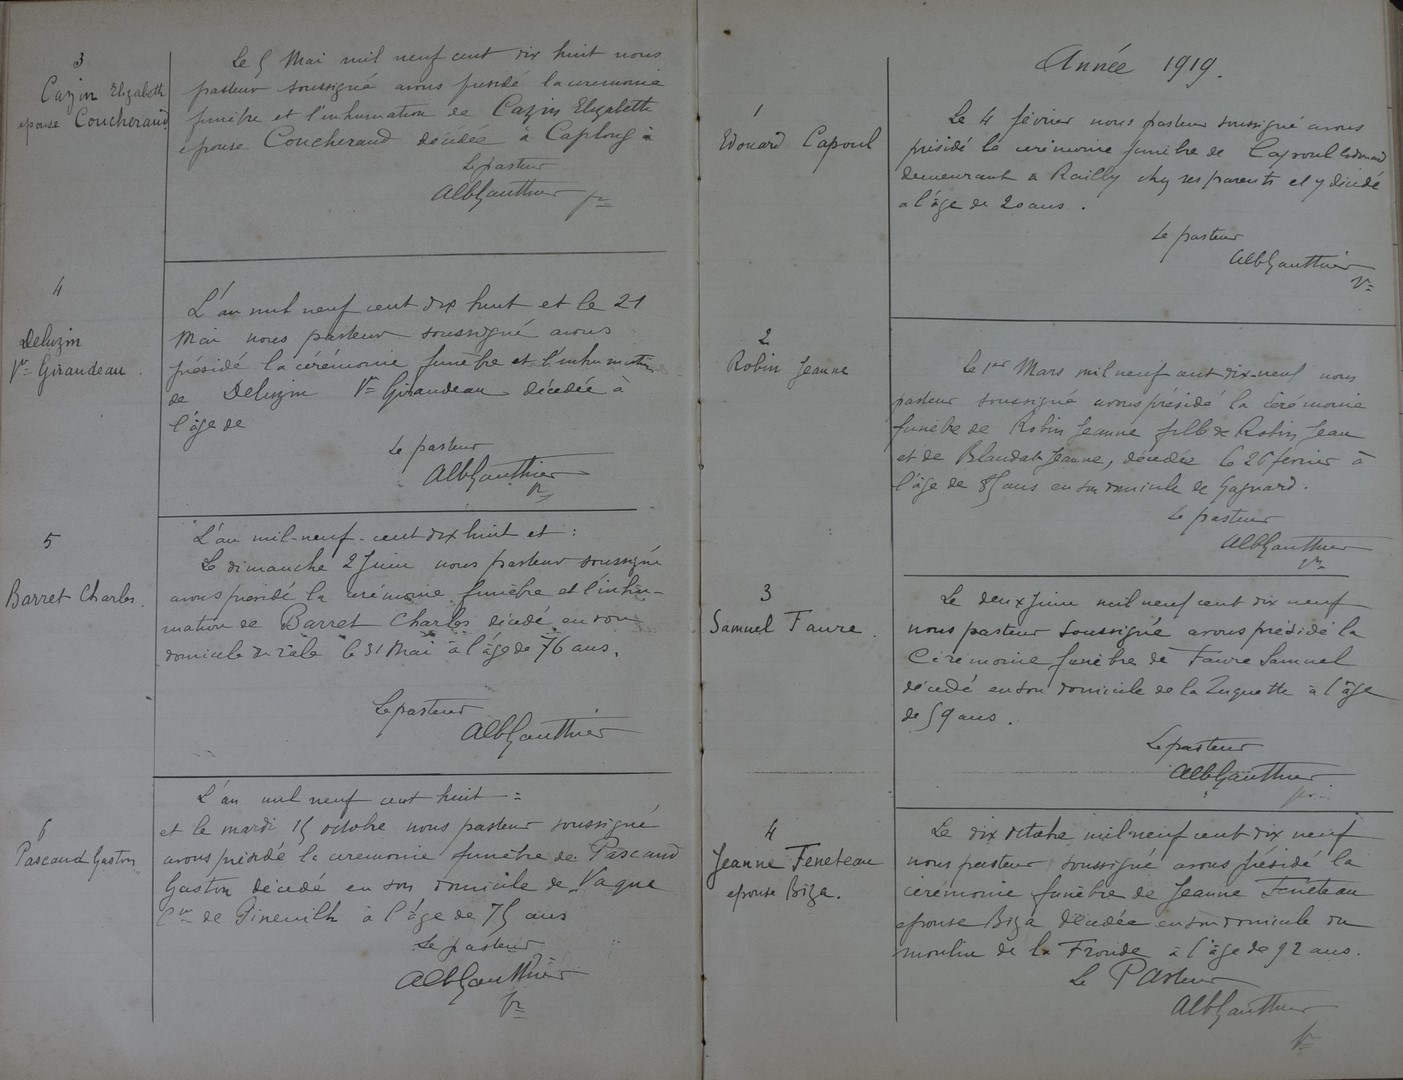 3
Cazin Elizabeth
epouse Coucheraud
Le 5 Mai mil neuf cent dix huit nous
pasteur soussigné avons présidé la ceremonie
funèbre et l'inhumation de Cazin Elizabeth
epouse Coucheraud décédée à Caplong à
Le pasteur
AlbGauthier
4
Deluzin
Vve Giraudeau.
L'an mil neuf cent dix huit et le 21
Mai nous pasteur soussigné avons
présidé la cérémonie funèbre et l'inhumation
de Deluzin Vve Giraudeau décédée à
l'âge de
Le pasteur
AlbGauthier
5
Barret Charles.
L'an mil-neuf-cent dix huit et :
Le dimanche 2 Juin nous pasteur soussigné
avons présidé la cérémonie funèbre et l'inhu-
mation de Barret Charles décédé en son
domicile de le 31 Mai à l'âge de 76 ans.
Le pasteur
AlbGauthier
6
Pascaud Gaston
L'an mil neuf cent huit =
et le mardi 15 octobre nous pasteur soussigné
avons présidé la ceremonie funèbre de Pascaud
Gaston décédé en son domicile de Vaque
Cne de Pineuilh à l'âge de 75 ans
Le pasteur
AlbGauthier
Année 1919.
1
Edouard Capoul
Le 4 février nous pasteur soussigné avons
présidé la cérémonie funèbre de Capoul Edouard
demeurant a Railly chez ses parents et y décédé
a l'âge de 20 ans.
Le pasteur
AlbGauthier
2
Robin Jeanne
Le 1er Mars mil neuf cent dix-neuf nous
pasteur soussigné avons présidé la cérémonie
funèbre de Robin Jeanne fille de Robin Jean
et de Jeanne, décédée le 26 février à
l'âge de 85 ans en son domicile de Gagnard.
Le pasteur
AlbGauthier
3
Samuel Faure.
Le deux Juin mil neuf cent dix neuf
nous pasteur soussigné avons présidé la
Cérémonie funèbre de Faure Samuel
décédé en son domicile de la à l'âge
de 59 ans.
Le pasteur
AlbGauthier
4
Jeanne Feneteau
epouse Biza.
Le dix octobre mil neuf cent dix neuf
nous pasteur soussigné avons présidé la
cérémonie funèbre de Jeanne Feneteau
epouse Biza décédée en son domicile du
moulin de la Fronde à l'âge de 92 ans.
Le Pasteur
AlbGauthier